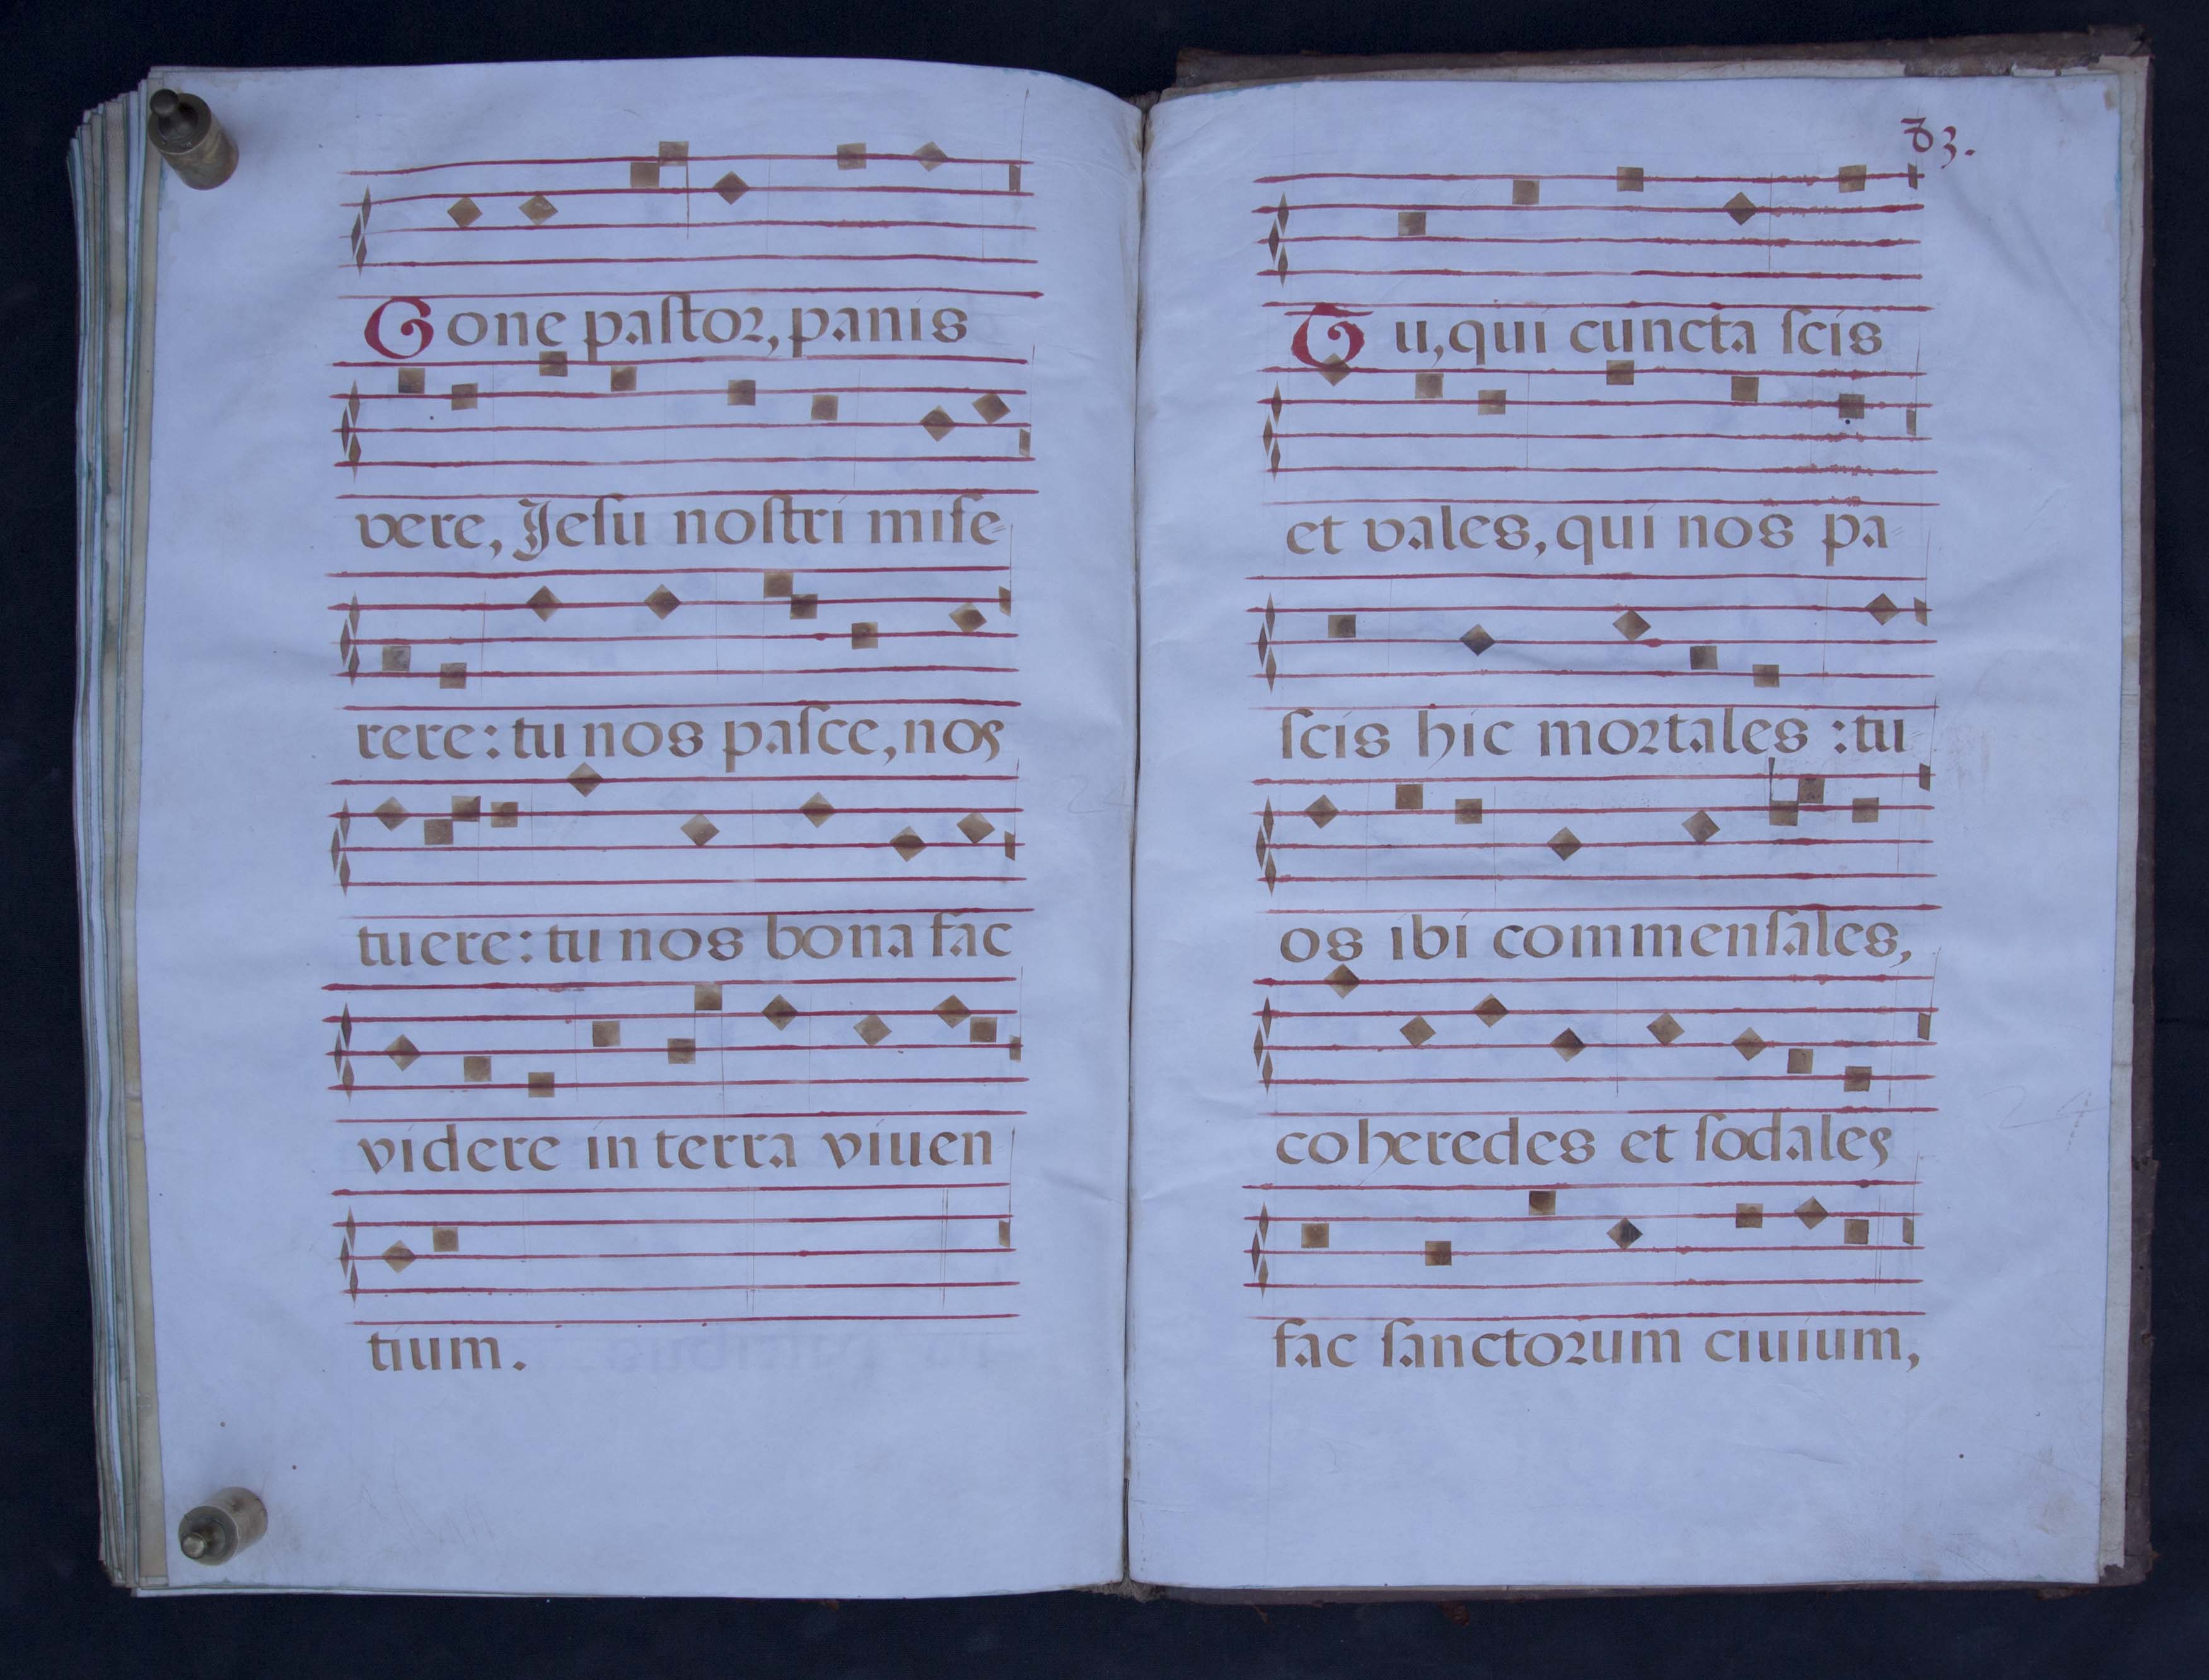 Bone pastor, panis
vere, Jesu nostri mise-
rere: tu nos pasce, nos
tuere: tu nos bona fac
videre in terra viuen
tium.
83.
Tu, qui cuncta scis
et vales, qui nos pa-
scis hic mortales: tu
os ibi commensales,
coheredes et sodales
fac sanctorum ciuium,